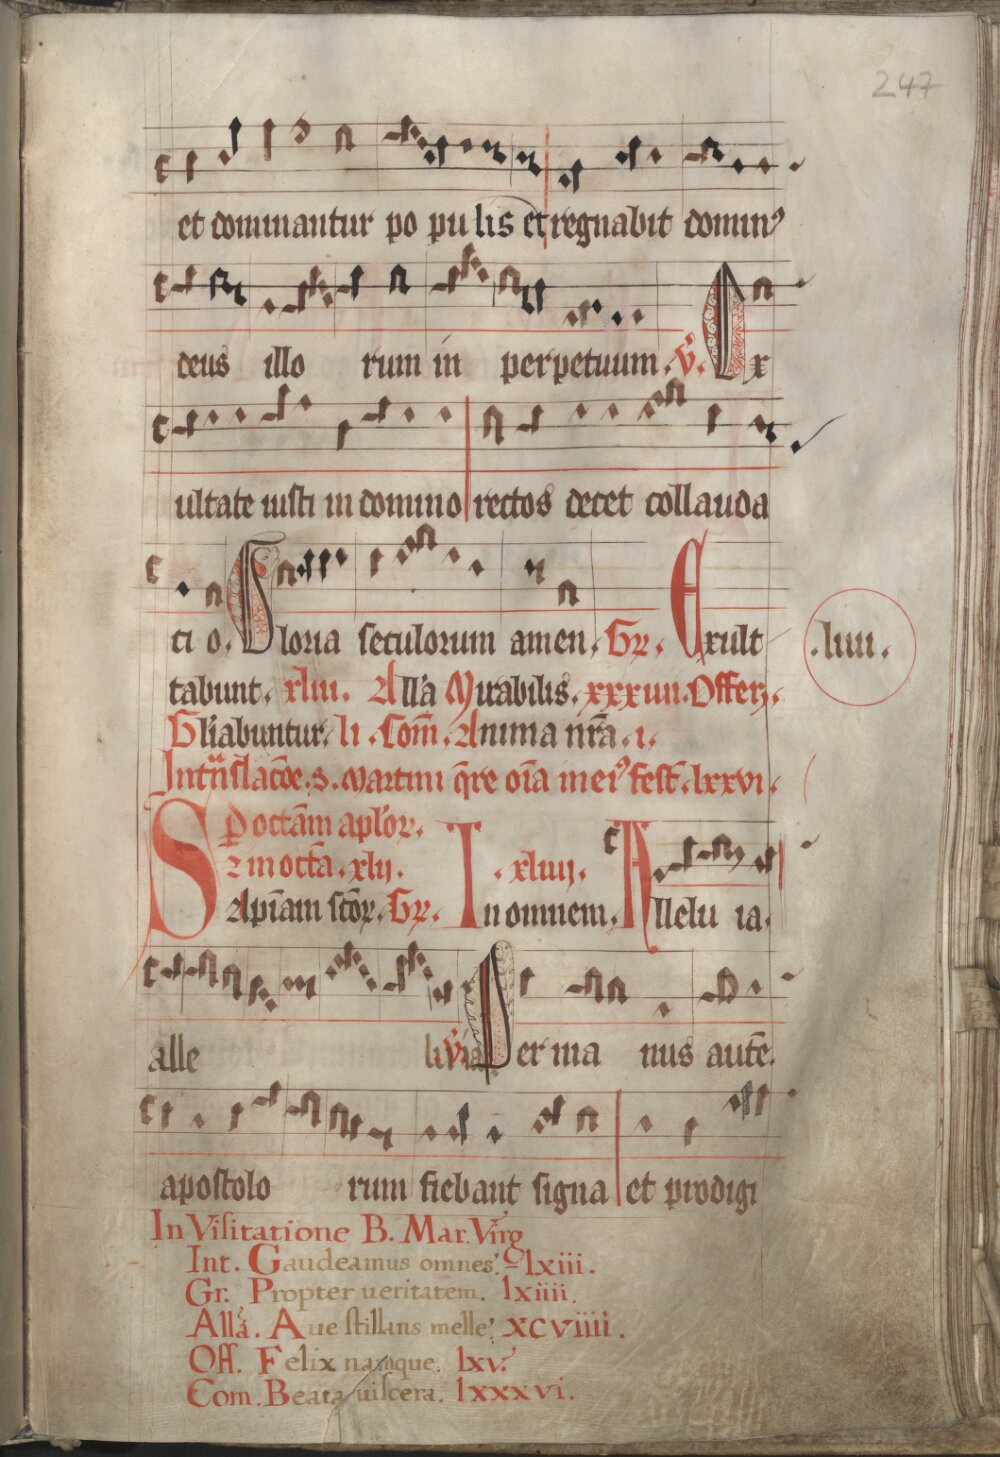 247
et dominantur po pu lis et regnabit domin⁹
deus illo rum in perpetuum. v̄. Ex
ultate iusti in domino rectos decet collauda
ci o. Gloria seculorum amen. Gr̄. Exult
.liiii.
tabunt. xliii. All'a Mirabilis. xxxiiii. Offer̄.
Gl'iabuntur. li. Com̄. Anima nr̄a. i.
In trāslacōe. s. Martini q̄re oīa in ei⁹ fest̄. lxxvi.
P octām apl'oꝝ.
2 in octā. xlij. . xliiij.
Sapīam scōꝝ. Gr̄. In omnem. Allelu ia.
alle luia v̄. Per ma nus autē.
apostolo rum fiebant signa et prodigi
In Visitatione B. Mar. Virg
Int. Gaudeamus omnes. C. lxiii.
Gr. Propter ueritatem. lxiiii.
Allā. Aue stillans melle. xcviiii.
Off. Felix namque. lxv.
Com. Beata uiscera. lxxxvi.